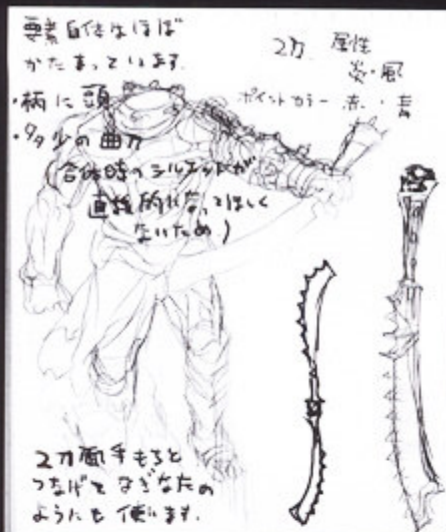 要素自体はほぼ
かたまっています。
・柄に頭
・多少の曲刀
(合体時のシルエットが
直線的になってほしく
ないため)
2刀 属性
炎・風
ポイントカラー 赤・青
2刀風手もちと
つなげてなぎなたの
ようにも使います。